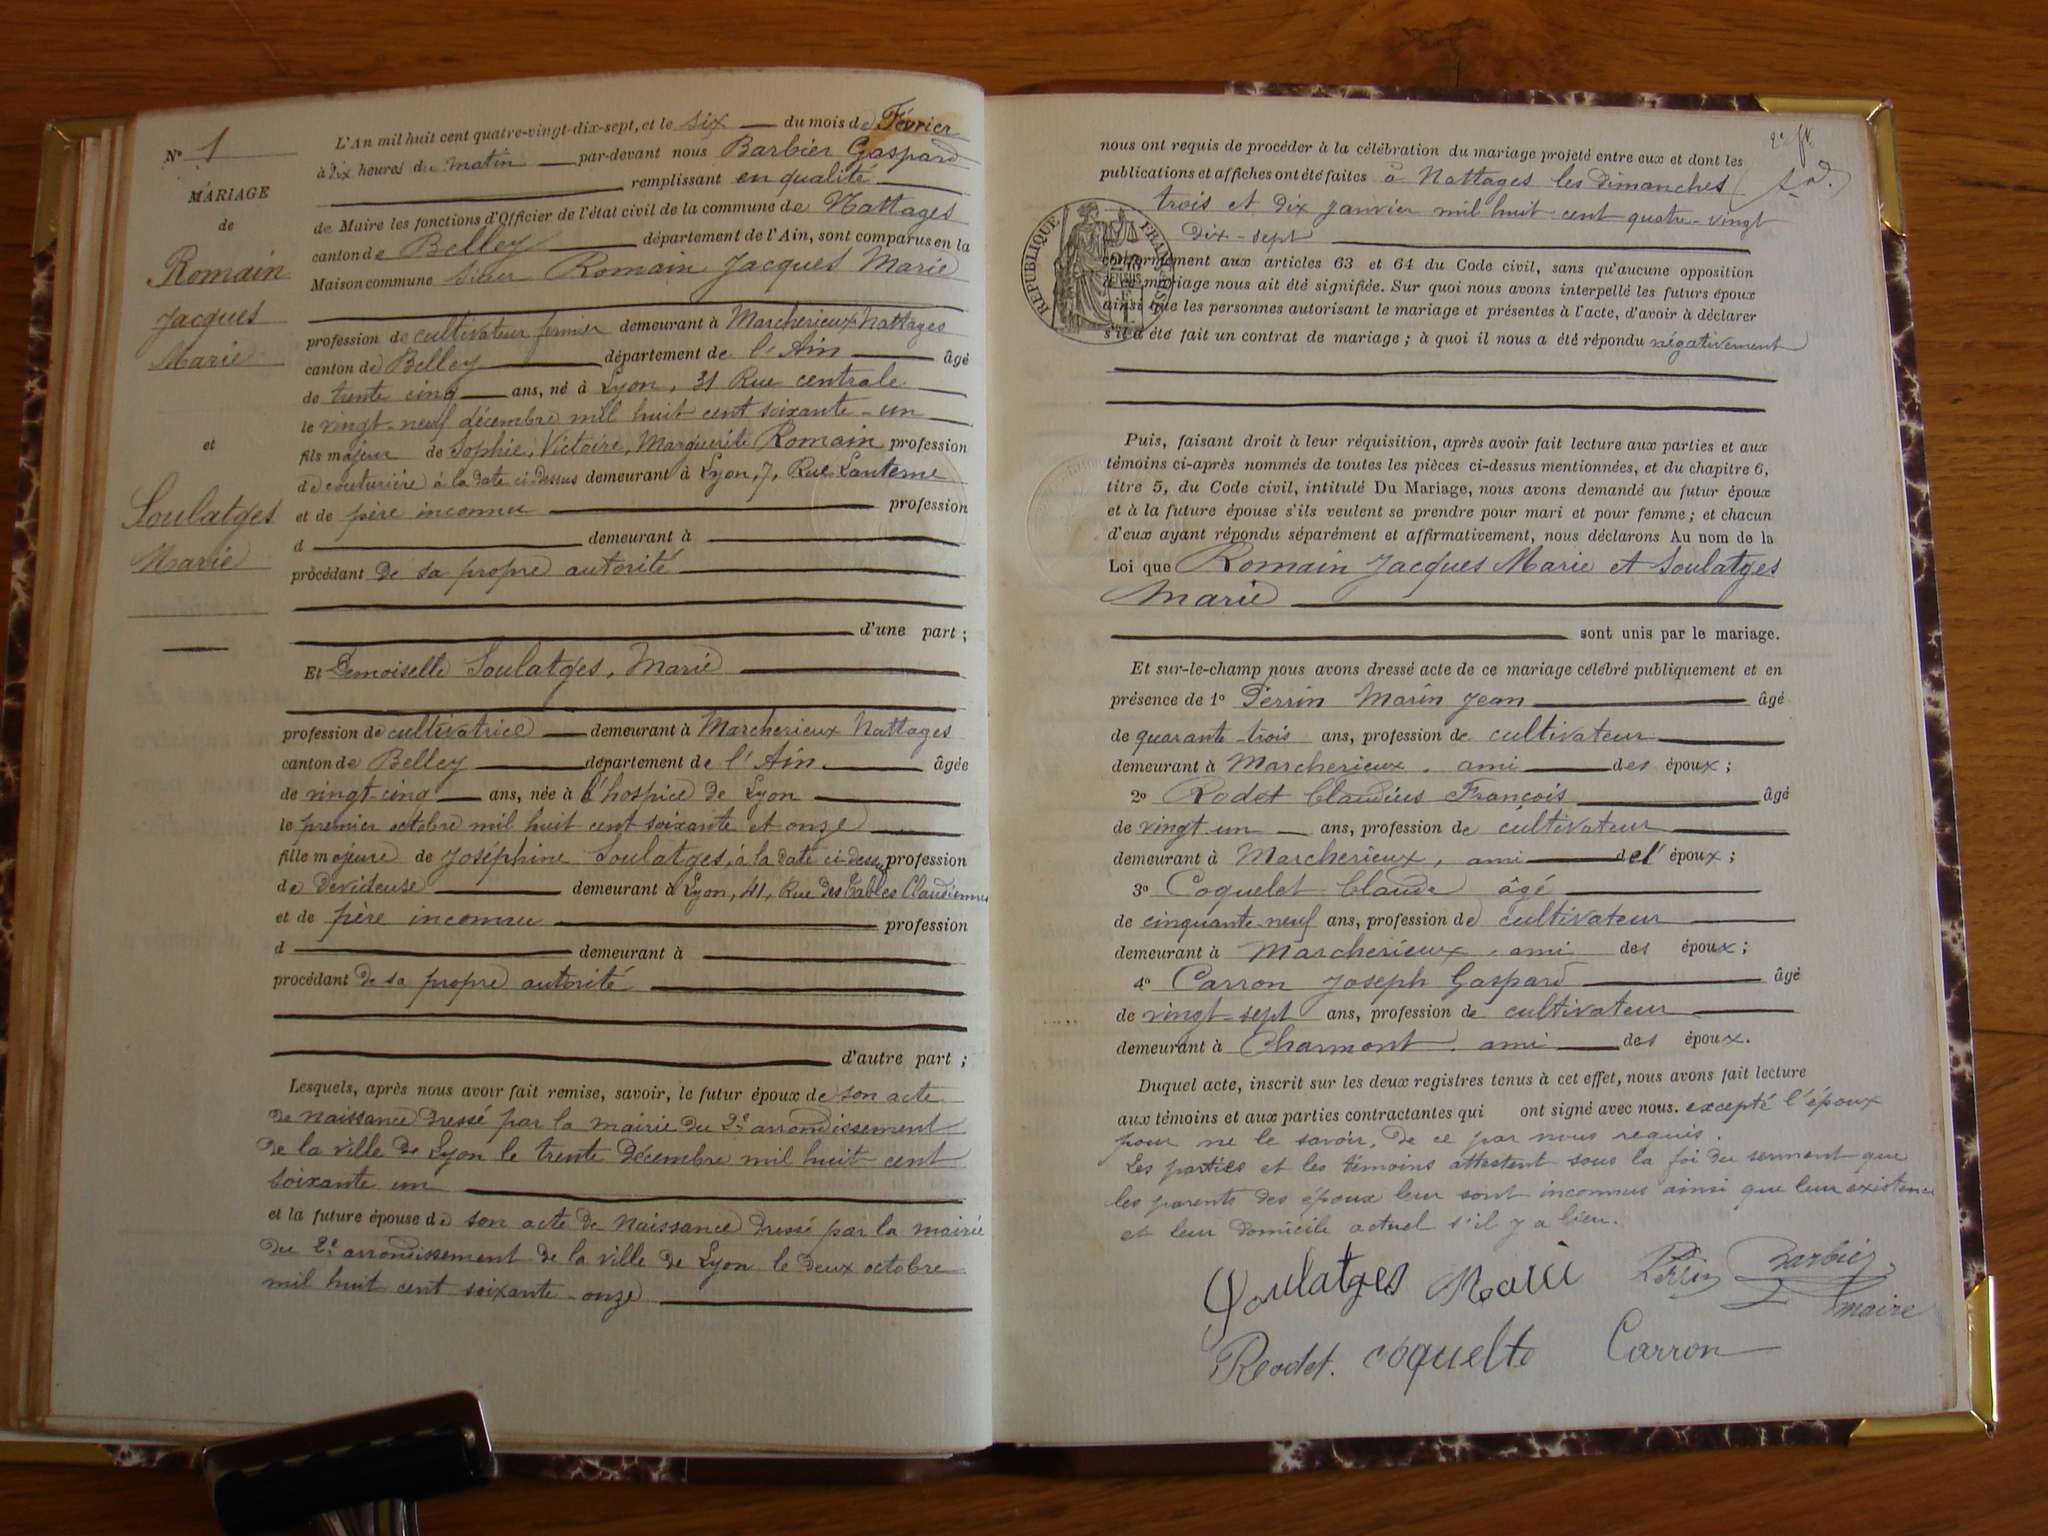 Nº 1
MARIAGE
de
Romain
Jacques
Marie
et
Soulatges
Marie
L'An mil huit cent quatre-vingt-dix-sept, et le six du mois de Février
à dix heures du matin par-devant nous Barbier Gaspard
remplissant en qualité
de Maire les fonctions d'Officier de l'état civil de la commune de Nattages
canton de Belley département de l'Ain, sont comparus en la
Maison commune sieur Romain Jacques Marie
profession de cultivateur fermier demeurant à Marcherieux Nattages
canton de Belley département de l'Ain âgé
de trente cinq ans, né à Lyon, 31 Rue centrale
le vingt-neuf décembre mil huit cent soixante-un
fils majeur de Sophie, Victoire, Marguerite Romain profession
de couturière à la date ci-dessus demeurant à Lyon, 7, Rue Lanterne
et de père inconnu profession
d demeurant à
procédant de sa propre autorité
d'une part ;
Et Demoiselle Soulatges, Marie
profession de cultivatrice demeurant à Marcherieux Nattages
canton de Belley département de l'Ain âgée
de vingt-cinq ans, née à l'hospice de Lyon
le premier octobre mil huit cent soixante et onze
fille majeure de Joséphine Soulatges, à la date ci-dessus profession
de devideuse demeurant à Lyon, 41, Rue des Tables Claudiennes
et de père inconnu profession
d demeurant à
procédant de sa propre autorité
d'autre part ;
Lesquels, après nous avoir fait remise, savoir, le futur époux de son acte
de naissance dressé par la mairie du 2e arrondissement
de la ville de Lyon le trente Décembre mil huit cent
soixante un
et la future épouse de son acte de naissance dressé par la mairie
du 2e arrondissement de la ville de Lyon le deux octobre
mil huit cent soixante-onze
2e
nous ont requis de procéder à la célébration du mariage projeté entre eux et dont les
publications et affiches ont été faites à Nattages les dimanches
trois et dix janvier mil huit-cent quatre-vingt
dix-sept
RÉPUBLIQUE FRANÇAISE
conformément aux articles 63 et 64 du Code civil, sans qu'aucune opposition
à ce mariage nous ait été signifiée. Sur quoi nous avons interpellé les futurs époux
ainsi que les personnes autorisant le mariage et présentes à l'acte, d'avoir à déclarer
s'il a été fait un contrat de mariage ; à quoi il nous a été répondu négativement
Puis, faisant droit à leur réquisition, après avoir fait lecture aux parties et aux
témoins ci-après nommés de toutes les pièces ci-dessus mentionnées, et du chapitre 6,
titre 5, du Code civil, intitulé Du Mariage, nous avons demandé au futur époux
et à la future épouse s'ils veulent se prendre pour mari et pour femme ; et chacun
d'eux ayant répondu séparément et affirmativement, nous déclarons Au nom de la
Loi que Romain Jacques Marie et Soulatges
Marie
sont unis par le mariage.
Et sur-le-champ nous avons dressé acte de ce mariage célébré publiquement et en
présence de 1º Perrin Marin Jean âgé
de quarante-trois ans, profession de cultivateur
demeurant à Marcherieux, ami des époux ;
2º Rodet Claudius François âgé
de vingt-un ans, profession de cultivateur
demeurant à Marcherieux, ami de l'époux ;
3º Coquelet Claude âgé
de cinquante-neuf ans, profession de cultivateur
demeurant à Marcherieux, ami des époux ;
4º Carron Joseph Gaspard âgé
de vingt-sept ans, profession de cultivateur
demeurant à Charmont, ami des époux.
Duquel acte, inscrit sur les deux registres tenus à cet effet, nous avons fait lecture
aux témoins et aux parties contractantes qui ont signé avec nous. excepté l'époux
pour ne le savoir, de ce par nous requis.
Les parties et les témoins attestent sous la foi du serment que
les parents des époux leur sont inconnus ainsi que leur existence
et leur domicile actuel s'il y a lieu.
Soulatges Marie Perrin Barbier
maire
Rodet. coquelte Carron